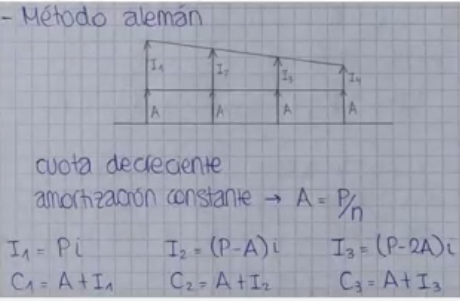 - Método alemán
I₁ I₂ I₃ I₄
A A A A
cuota decreciente
amortización constante → A = P/n
I₁ = Pi I₂ = (P-A)i I₃ = (P-2A)i
C₁ = A + I₁ C₂ = A + I₂ C₃ = A + I₃